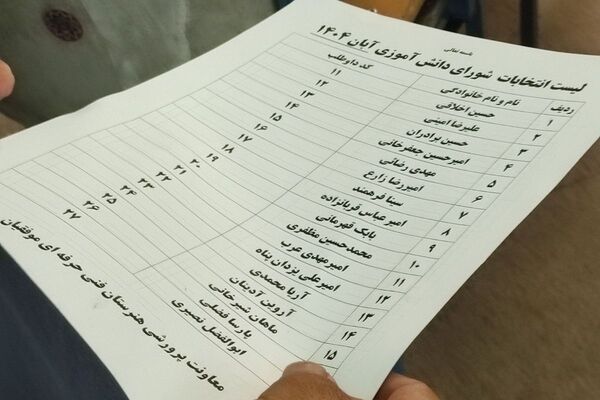 باسمه تعالی
لیست انتخابات شورای دانش آموزی آبان ۱۴۰۴
ردیف نام و نام خانوادگی کد داوطلب
۱ حسین اخلاقی ۱۱
۲ علیرضا امینی ۱۲
۳ حسین برادران ۱۳
۴ امیرحسین جعفرخانی ۱۴
۵ مهدی رضائی ۱۵
۶ امیررضا زارع ۱۶
۷ سینا فرهمند ۱۷
۸ امیرعباس قربانزاده ۱۸
۹ بابک قهرمانی ۱۹
۱۰ محمدحسین مظفری ۲۰
۱۱ امیرمهدی عرب ۲۱
۱۲ امیرعلی یزدان پناه ۲۲
۱۳ آریا محمدی ۲۳
۱۴ آروین آدینان ۲۴
۱۵ ماهان شیرخانی ۲۵
پارسا فضلی ۲۶
ابوالفضل نصیری ۲۷
معاونت پرورشی هنرستان فنی حرفه ای موفقیان